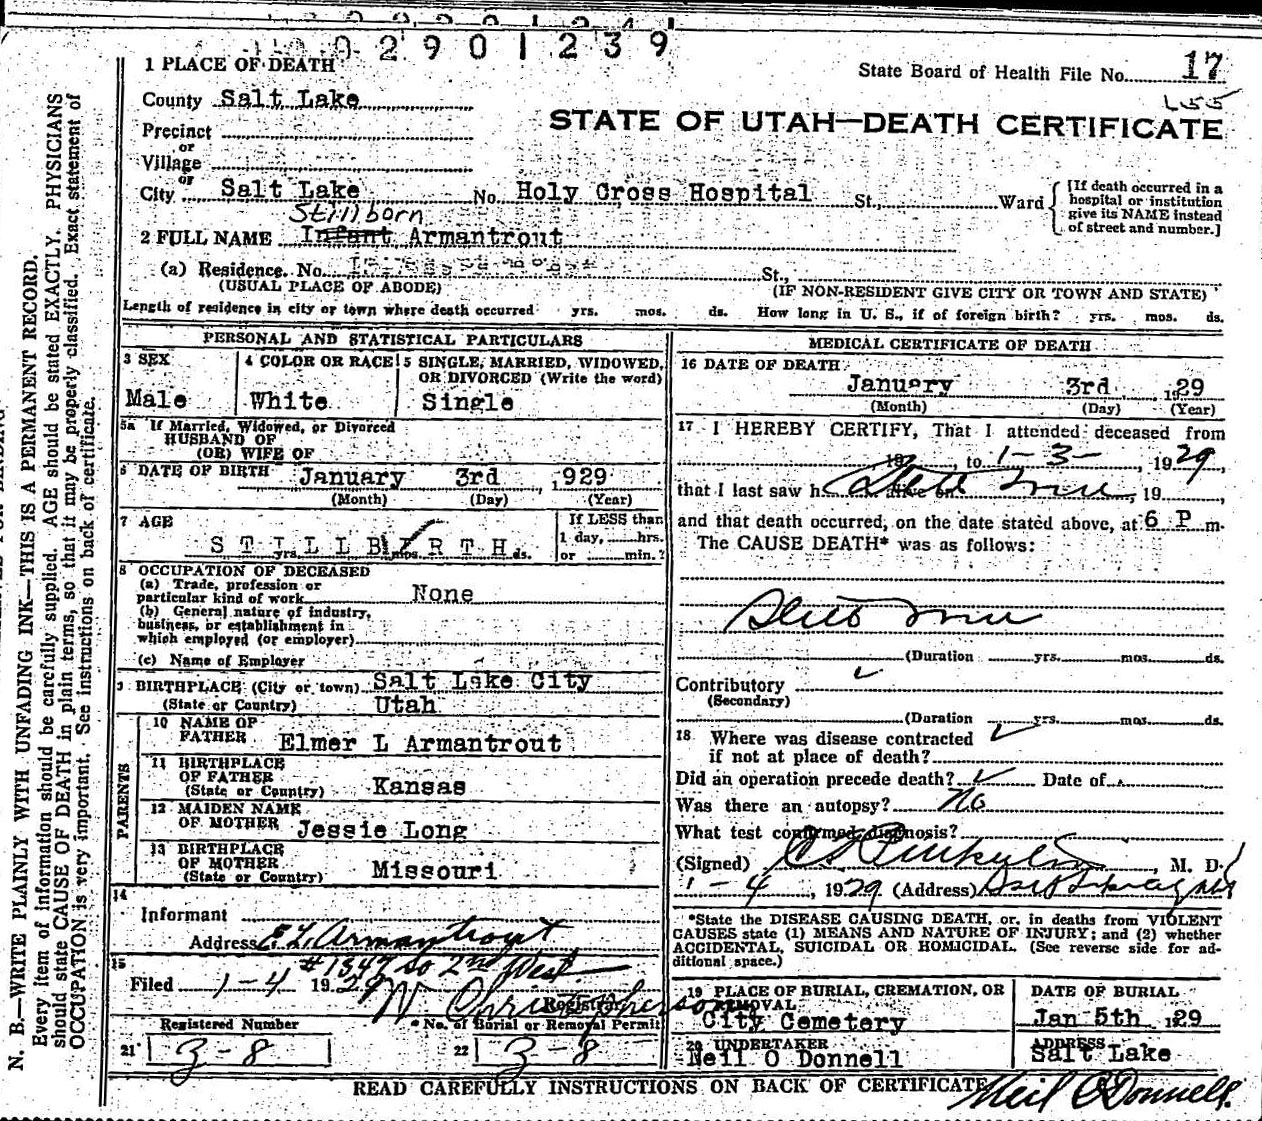 02901239
1 PLACE OF DEATH
State Board of Health File No. 17
County Salt Lake
L55
STATE OF UTAH—DEATH CERTIFICATE
Precinct
or
Village
or
City Salt Lake No. Holy Cross Hospital St., Ward
[If death occurred in a
hospital or institution
give its NAME instead
of street and number.]
Stillborn
2 FULL NAME Infant Armantrout
(a) Residence. No. St.,
(USUAL PLACE OF ABODE) (IF NON-RESIDENT GIVE CITY OR TOWN AND STATE)
Length of residence in city or town where death occurred yrs. mos. ds. How long in U. S., if of foreign birth? yrs. mos. ds.
PERSONAL AND STATISTICAL PARTICULARS
3 SEX 4 COLOR OR RACE 5 SINGLE, MARRIED, WIDOWED,
OR DIVORCED (Write the word)
Male White Single
5a If Married, Widowed, or Divorced
HUSBAND OF
(OR) WIFE OF
6 DATE OF BIRTH January 3rd , 929
(Month) (Day) (Year)
7 AGE If LESS than
1 day, hrs.
STILLBIRTH yrs. mos. ds. or min.?
8 OCCUPATION OF DECEASED
(a) Trade, profession or
particular kind of work None
(b) General nature of industry,
business, or establishment in
which employed (or employer)
(c) Name of Employer
9 BIRTHPLACE (City or town) Salt Lake City
(State or Country) Utah
PARENTS
10 NAME OF
FATHER Elmer L Armantrout
11 BIRTHPLACE
OF FATHER
(State or Country) Kansas
12 MAIDEN NAME
OF MOTHER Jessie Long
13 BIRTHPLACE
OF MOTHER
(State or Country) Missouri
14
Informant
Address E L Armantrout
#1347 So 2nd West
15
Filed 1-4 1929
Registrar
Registered Number * No. of Burial or Removal Permit
21 3-8 22 3-8
MEDICAL CERTIFICATE OF DEATH
16 DATE OF DEATH
January 3rd , 1929
(Month) (Day) (Year)
17 I HEREBY CERTIFY, That I attended deceased from
19 , to 1-3- , 1929,
that I last saw h alive on , 19 ,
and that death occurred, on the date stated above, at 6 P m.
The CAUSE DEATH* was as follows:
(Duration yrs. mos. ds.
Contributory
(Secondary)
(Duration yrs. mos. ds.
18 Where was disease contracted
if not at place of death?
Did an operation precede death? Date of
Was there an autopsy? No
What test confirmed diagnosis?
(Signed) , M. D.
1-4 , 1929 (Address)
*State the DISEASE CAUSING DEATH, or, in deaths from VIOLENT
CAUSES state (1) MEANS AND NATURE OF INJURY; and (2) whether
ACCIDENTAL, SUICIDAL OR HOMICIDAL. (See reverse side for ad-
ditional space.)
19 PLACE OF BURIAL, CREMATION, OR
REMOVAL
City Cemetery
DATE OF BURIAL
Jan 5th , 1929
20 UNDERTAKER
Neil O Donnell
ADDRESS
Salt Lake
READ CAREFULLY INSTRUCTIONS ON BACK OF CERTIFICATE
Neil O'Donnell.
N. B.—WRITE PLAINLY WITH UNFADING INK—THIS IS A PERMANENT RECORD.
Every item of information should be carefully supplied. AGE should be stated EXACTLY. PHYSICIANS
should state CAUSE OF DEATH in plain terms, so that it may be properly classified. Exact statement of
OCCUPATION is very important. See instructions on back of certificate.